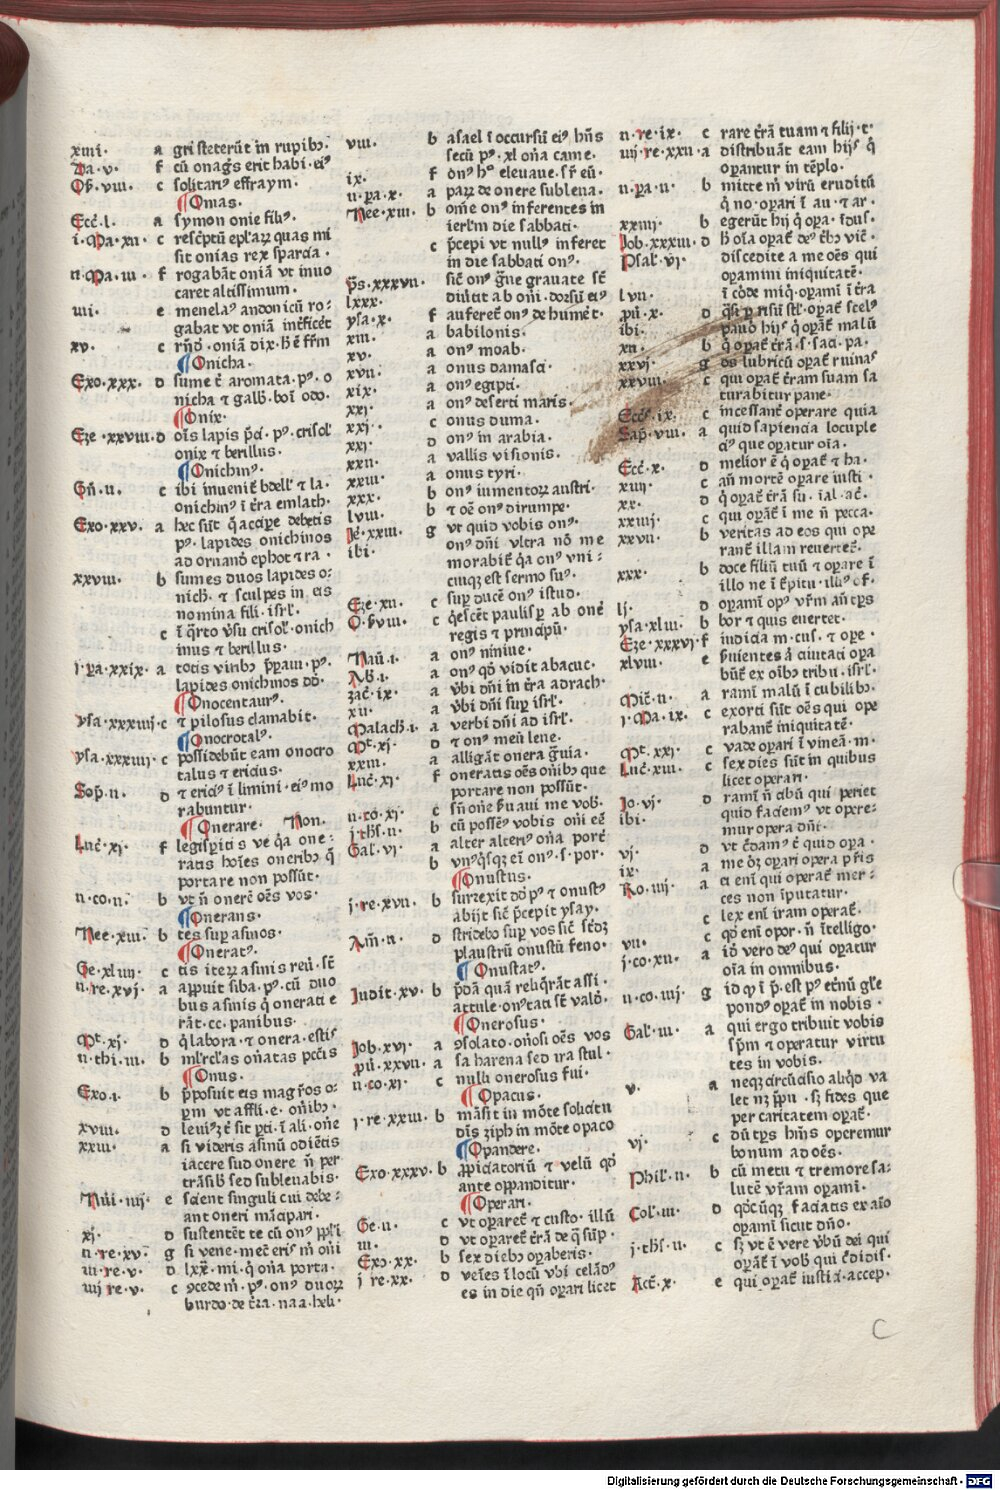 xiiii. a gri steterūt in rupibꝫ.
Da. v. f cū onagꝭ erit habi. eiꝰ
Oſ. viii. c solitariꝰ effraym.
¶Onias.
Eccꝉ. l. a symon onie filiꝰ.
i. Ma. xii. c rescͥptū epl'aꝝ quas mi
sit onias rex sparcia.
ii. Ma. iii. f rogabāt oniā vt inuo
caret altissimum.
iiii. e menelaꝰ andonicū ro-
gabat vt oniā int̄ficēt
xv. c
¶Onicha.
Exo. xxx. d sume t̄ aromata. pꝰ. o
nicha et galb. boī odo.
¶Onix.
Eze. xxviii. d oīs lapis p̄ci. pꝰ. crisol'
onix et berillus.
¶Onichinꝰ.
Gn̄. ii. c ibi inuenit̄ bdell' et la.
onichinꝰ ī t̄ra emlath.
Exo. xxv. a hec sūt q̄ accip̄e debetis
pꝰ. lapides onichinos
ad ornandō ephot et ra.
xxviii. b sumes duos lapides o-
nich̄. et sculpes in eis
nomina fili. isrl'.
c ī q̄rto v̄su crisol'. onich
inus et berillus.
i. Pa. xxix. a totis viribꝫ p̄paui. pꝰ.
lapides onichinos dō.
¶Onocentaurꝰ.
ysa. xxxiiii. c et pilosus clamabit.
¶Onocrotalꝰ.
ysa. xxxiiii. c possidebūt eam onocro
talus et ericius.
Sop̄. ii. d et ericiꝰ ī limini. eiꝰ mo
rabuntur.
¶Onerare. Non.
Luc̄. xi. f legispitis ve q̄a one-
ratis hoīes oneribꝫ q̄
portare non possūt.
ii. co. ii. b vt n̄ onerē oēs vos.
¶Onerans.
Nee. xiii. b tes sup̄ asinos.
¶Oneratꝰ.
Ge. xliiii. c tis iteꝝ asinis reū. st̄
ii. re. xvi. a appuit siba. pꝰ. cū duo
bus asinis q̄ onerati e
rāt. cc. panibus.
Mt̄. xi. d q̄ labora. et onera. estis
ii. thi. iii. b ml'rcl'as on̄atas pcc̄is
¶Onus.
Exo. i. b p̄posuit eis magr̄os o-
p̄m vt affli. e. on̄ibꝫ.
xviii. d leuiꝰꝫ t̄ sit p̄ti. ī ali. on̄e
xxiii. a si videris asinū odiētis
iacere sub onere n̄ per
trāsib̄ sed subleuabis.
Nūi. iiii. e scient singuli cui debe-
ant oneri mācipari.
xi. d sustentēt te cū onꝰ pp̄l'i
ii. re. xv. g si vene. mec̄ eris m̄ on̄i
iii. re. v. d lxx̄. mi. q̄ on̄a porta.
iiii re. v. c ꝯcede m̄. pꝰ. onꝰ duoꝝ
burdo. de t̄ra. na a. heli.
viii. b asael ī occursū eiꝰ hn̄s
secū pꝰ. xl on̄a came.
ix. f onꝰ hͦ eleuaue. sr̄ eū.
ii. pa. x. a paꝝ de onere subleua.
Nee. xiii. b om̄e onꝰ inferentes in
ierl'm die sabbati.
c p̄cepi vt nullꝰ inferet
in die sabbati onꝰ.
p̄s. xxxvii. sic̄ onꝰ gͣue grauate st̄
lxxx. diūtit ab on̄i. dorsū eiꝰ
ysa. x. f auferet̄ onꝰ de humet̄.
xiii. a babilonis.
xv. a onꝰ moab.
xvii. a onus damasci.
xix. a onꝰ egipti.
xxi. a onꝰ deserti maris.
xxi. c onus duma.
xxi. d onꝰ in arabia.
xxii. a vallis visionis.
xxiii. a onus tyri.
xxx. b onꝰ iumentoꝝ austri.
lviii. b et oē onꝰ dirumpe.
Je. xxiii. g vt quid vobis onꝰ.
ibi. onꝰ dn̄i vltra nō me
morabit̄ q̄a onꝰ vni-
cuiqꝫ est sermo suꝰ.
Eze. xii. c sup̄ ducē onꝰ istud.
O. viii. c q̄escēt paulisp̄ ab one̅
regis et principū.
Naū. i. a onꝰ niniue.
Ab̄. i. a onꝰ qd̄ vidit abacuc.
zac̄. ix. a v̄bi dn̄i in t̄ra adrach.
xii. a v̄bi dn̄i sup̄ isrl'.
Malach̄. i. a verbi dn̄i ad isrl'.
Mt̄. xi. d et onꝰ meū leue.
xxiii. a alligāt onera gͣuia.
Luc̄. xi. f oneratis oēs on̄ibꝫ que
portare non possūt.
ii. co. xi. c sn̄ on̄e ẜuaui me vob̄.
i. thſ. ii. b cū possēꝰ vobis on̄i eē
Gal'. vi. a alter alteriꝰ on̄a port̄
b vnꝰqͥsqꝫ eī onꝰ. s. por.
¶Onustus.
i. re. xvii. b surrexit dd̄ pꝰ et onustꝰ
abijt sic̄ p̄cepit ysay.
Am̄. ii. d stridebo sup̄ vos sic̄ st̄dꝫ
plaustrū onustū feno.
¶Onustatꝰ.
Judit. xv. b p̄dā quā reliq̄rāt assi.
attule. onꝰtati st̄ valō.
¶Onerosus.
Job. xvi. a ꝯsolato. on̄osi oēs vos
p̄u. xxvii. a sa harena sed ira stul.
ii. co. xi. c nulli onerosus fui.
¶Opacus.
i. re. xxiii. b māsit in mōte solicitu
dīs ziph in mōte opaco
¶Opandere.
Exo. xxxv. b ꝓpiciatoriū et velū qd̄
ante oppanditur.
¶Operari.
Ge. ii. c vt opa̅ret̄ et custo. illū
iii. d vt opa̅ret̄ t̄rā de q̄ sūp̄.
Exo. xx. b sex diebꝫ opa̅beris.
i re. xx. d veīes ī locū vbi celādꝰ
es in die qn̄ opa̅ri licet
ii. re. ix. c rare t̄rā tuam et filij. t.
iiij. re. xxii. a distribuāt eam hijs q̄
opantur in tēplo.
ii. pa. ii. b mitte m̄ virū eruditū
q̄ no. opari ī au. et ar.
xxiiij. b egerūt hij q̄ opa. īdus.
Job. xxxiii. d
Psal'. vi. discedite a me oēs qui
opamini iniquitatē.
lvii. ī corde miq̄. opamī ī t̄ra
p̄u. x. d
ibi.
xii. b q̄ opat̄ t̄rā. s. saci. pa.
xxvi. g os lubricū opat̄ ruinaꝰ
xxviii. c qui opat̄ t̄ram suam sa
turabitur pane.
Eccꝉ. ix. c incessant̄ operare quia
Sap̄. viii. a quid sapiencia locuple
ciꝰ que opatur oīa.
Eccꝉ. x. d melior ē q̄ opat̄ et ha.
xiiij. c an̄ mortē opare iusti.
xx. d q̄ opat̄ t̄rā su. ial. ac̄.
xxiiij. c qui opāt̄ ī me n̄ pecca.
xxvii. b veritas ad eos qui ope
rant̄ illam reuertet̄.
xxx. b doce filiū tuū et opare ī
illo ne ī t̄pitu. illiꝰ of.
lj. d opamī opꝰ vr̄m an̄ tp̄s
ysa. xliii. b bor et quis euertet.
Eze. xxxvi. f iudicia m. cus. et ope.
xlviii. e ẜuientes ā ciuitati opa
būt̄ ex oībꝫ tribu. isrl'.
Mic̄. ii. a ramī malū ī cubilibꝫ.
i. Ma. ix. c exorti sūt oēs qui ope
rabant̄ iniquitatē.
Mt̄. xxi. c vade opari ī vineā. m.
Luc̄. xiii. c sex dies sūt in quibus
licet operari.
Jo. vi. d ramī n̄ cibū qui periet
ibi. quid faciemꝰ vt opere-
mur opera dn̄i.
vi. d vt c̄damꝰ t̄ quid opa.
ix. a me oꝫ opari opera p̄ris
Ro. iiij. a ei enī qui operat̄ mer-
ces non īputatur.
c lex enī iram operat̄.
vii. c qd̄ enī opor. n̄ ītelligo.
i. co. xii. a id̄ vero deꝰ qui opatur
oīa in omnibus.
ii. co. iiij. g id qd̄ ī p̄. est pꝰ et̄nū gl'e
pondꝰ opat̄ in nobis.
Gal'. iii. a qui ergo tribuit vobis
sp̄m et operatur virtu
tes in vobis.
v. a neqꝫ circūcisio aliqͥd va
let neqꝫ p̄pu. sꝫ fides que
per caritatem opat̄.
vi. c dū tp̄s hm̄s operemur
bonum ad oēs.
Phil'. ii. b cū metu et tremore sa-
lutē vr̄am opamī.
Col'. iii. d qd̄cūqꝫ faciatis ex aīo
opamī sicut dn̄o.
i. thſ. ii. c sꝫ vt ē vere v̄bū dei qui
opat̄ ī vob̄ qui c̄didis.
Act̄. x. e qui opat̄ iusti. accep.
C
Digitalisierung gefördert durch die Deutsche Forschungsgemeinschaft - DFG